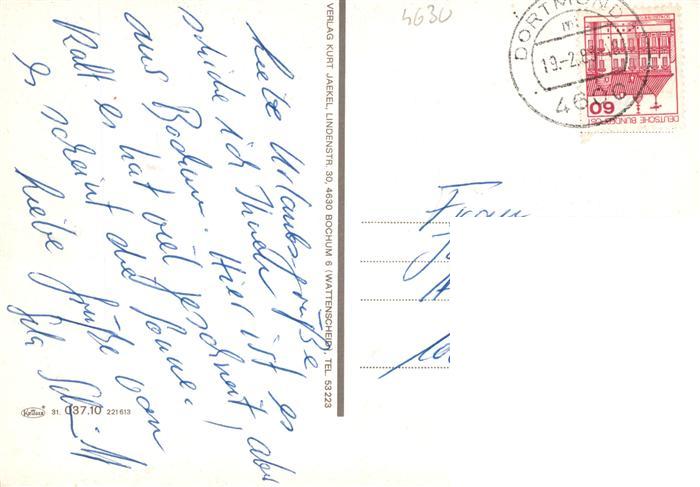 Liebe Urlaubsgrüße
schicke ich Ihnen
aus Bochum. Hier ist es
kalt es hat viel geschneit, aber
es scheint die Sonne.
Liebe Grüße von
VERLAG KURT JAEKEL, LINDENSTR. 30, 4630 BOCHUM 6 (WATTENSCHEID), TEL. 53223
Krüger 31. 037.10 221613
4630
DORTMUND
19.-2.8
DEUTSCHE BUNDESPOST
60
Frau